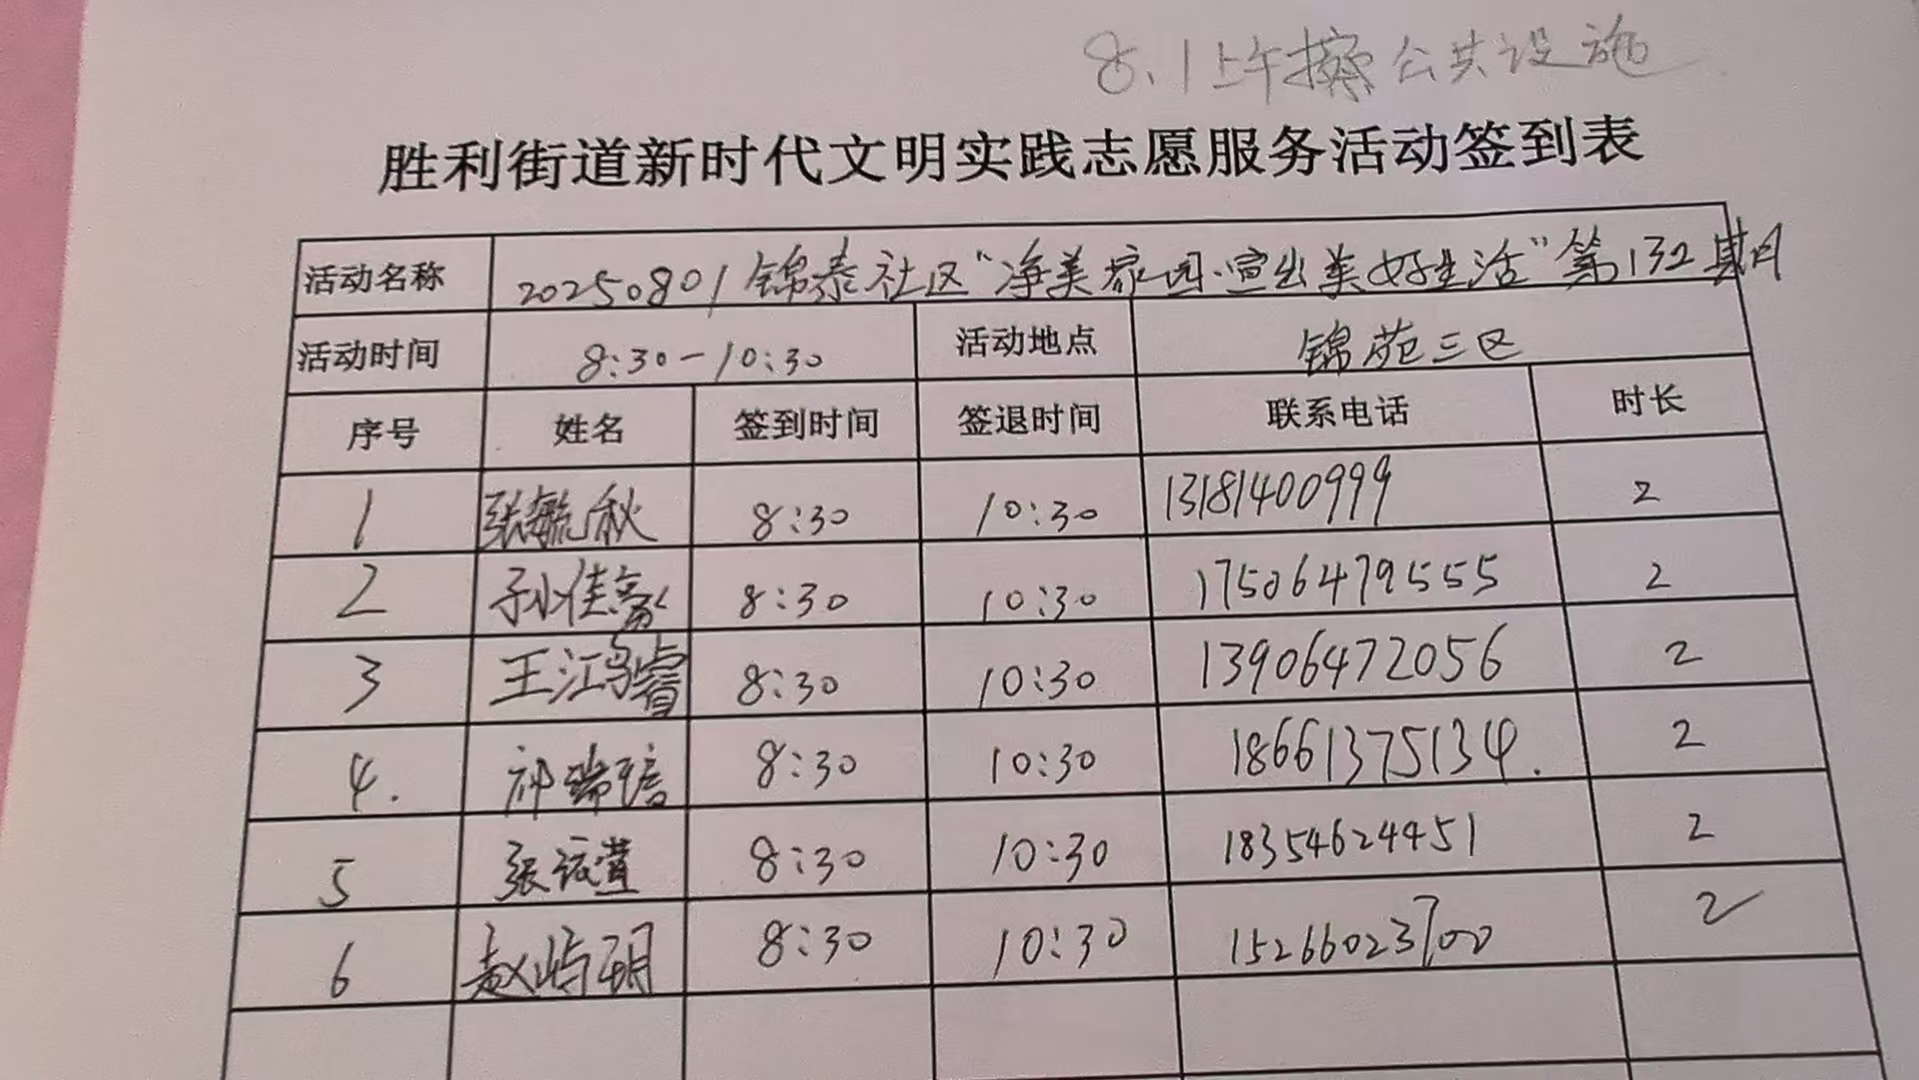 8.1上午擦公共设施
胜利街道新时代文明实践志愿服务活动签到表
活动名称 20250801锦泰社区“净美家园·宣出美好生活”第132期
活动时间 8:30-10:30 活动地点 锦苑三区
序号 姓名 签到时间 签退时间 联系电话 时长
1 张毓秋 8:30 10:30 13181400999 2
2 孙佳豪 8:30 10:30 17506479555 2
3 王江睿 8:30 10:30 13906472056 2
4. 祁瑞 8:30 10:30 18661375134. 2
5 张 8:30 10:30 18354624451 2
6 赵屿玥 8:30 10:30 15266023700 2